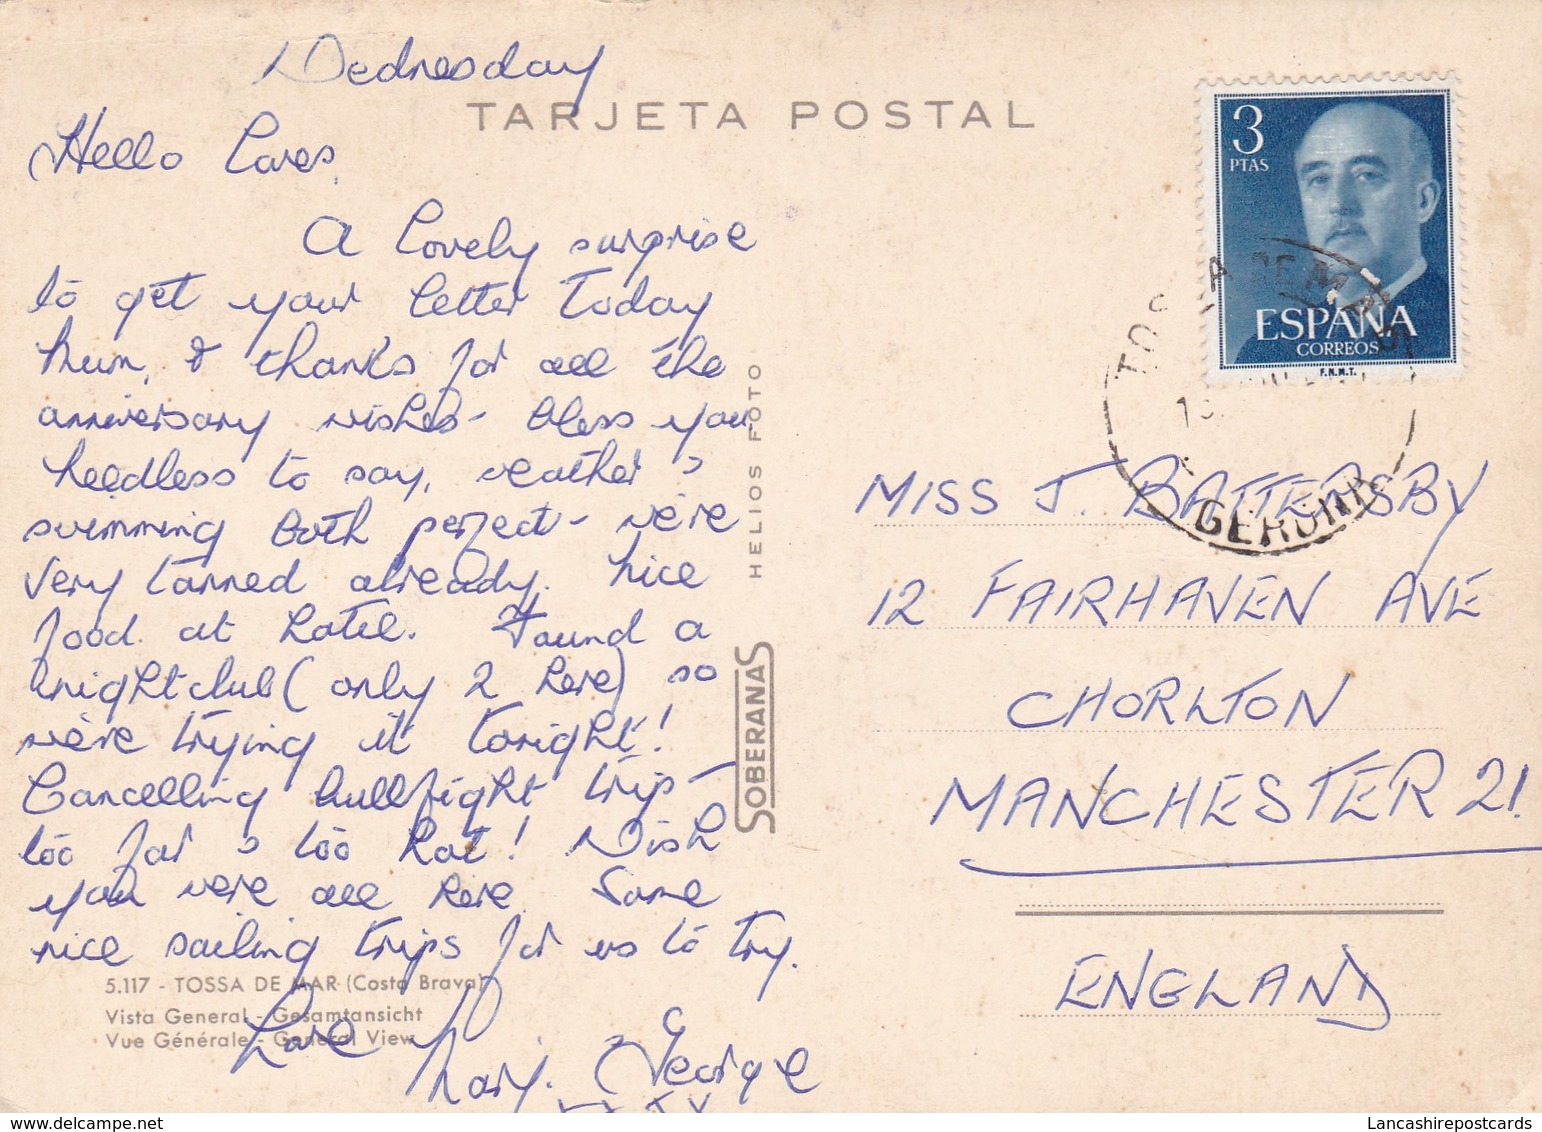 Wednesday
TARJETA POSTAL
Hello Loves,
A lovely surprise
to get your letter today
hum, & thanks for all the
anniversary wishes - bless you
needless to say, weather &
swimming both perfect - we're
very tanned already. Nice
food at hotel. Found a
nightclub (only 2 here) so
we're trying it tonight!
Cancelling bullfight trip -
too far & too hot! Wish
you were all here. Some
nice sailing trips for us to try.
5.117 - TOSSA DE MAR (Costa Brava)
Vista General - Gesamtansicht
Vue Générale - General View
Love
Mary. George
HELIOS FOTO
SOBERANAS
3
PTAS
ESPAÑA
CORREOS
F.N.M.T.
TOSSA DE MAR
GERONA
MISS J. BATTERSBY
12 FAIRHAVEN AVE
CHORLTON
MANCHESTER 21.
ENGLAND
delcampe.net
Lancashirepostcards